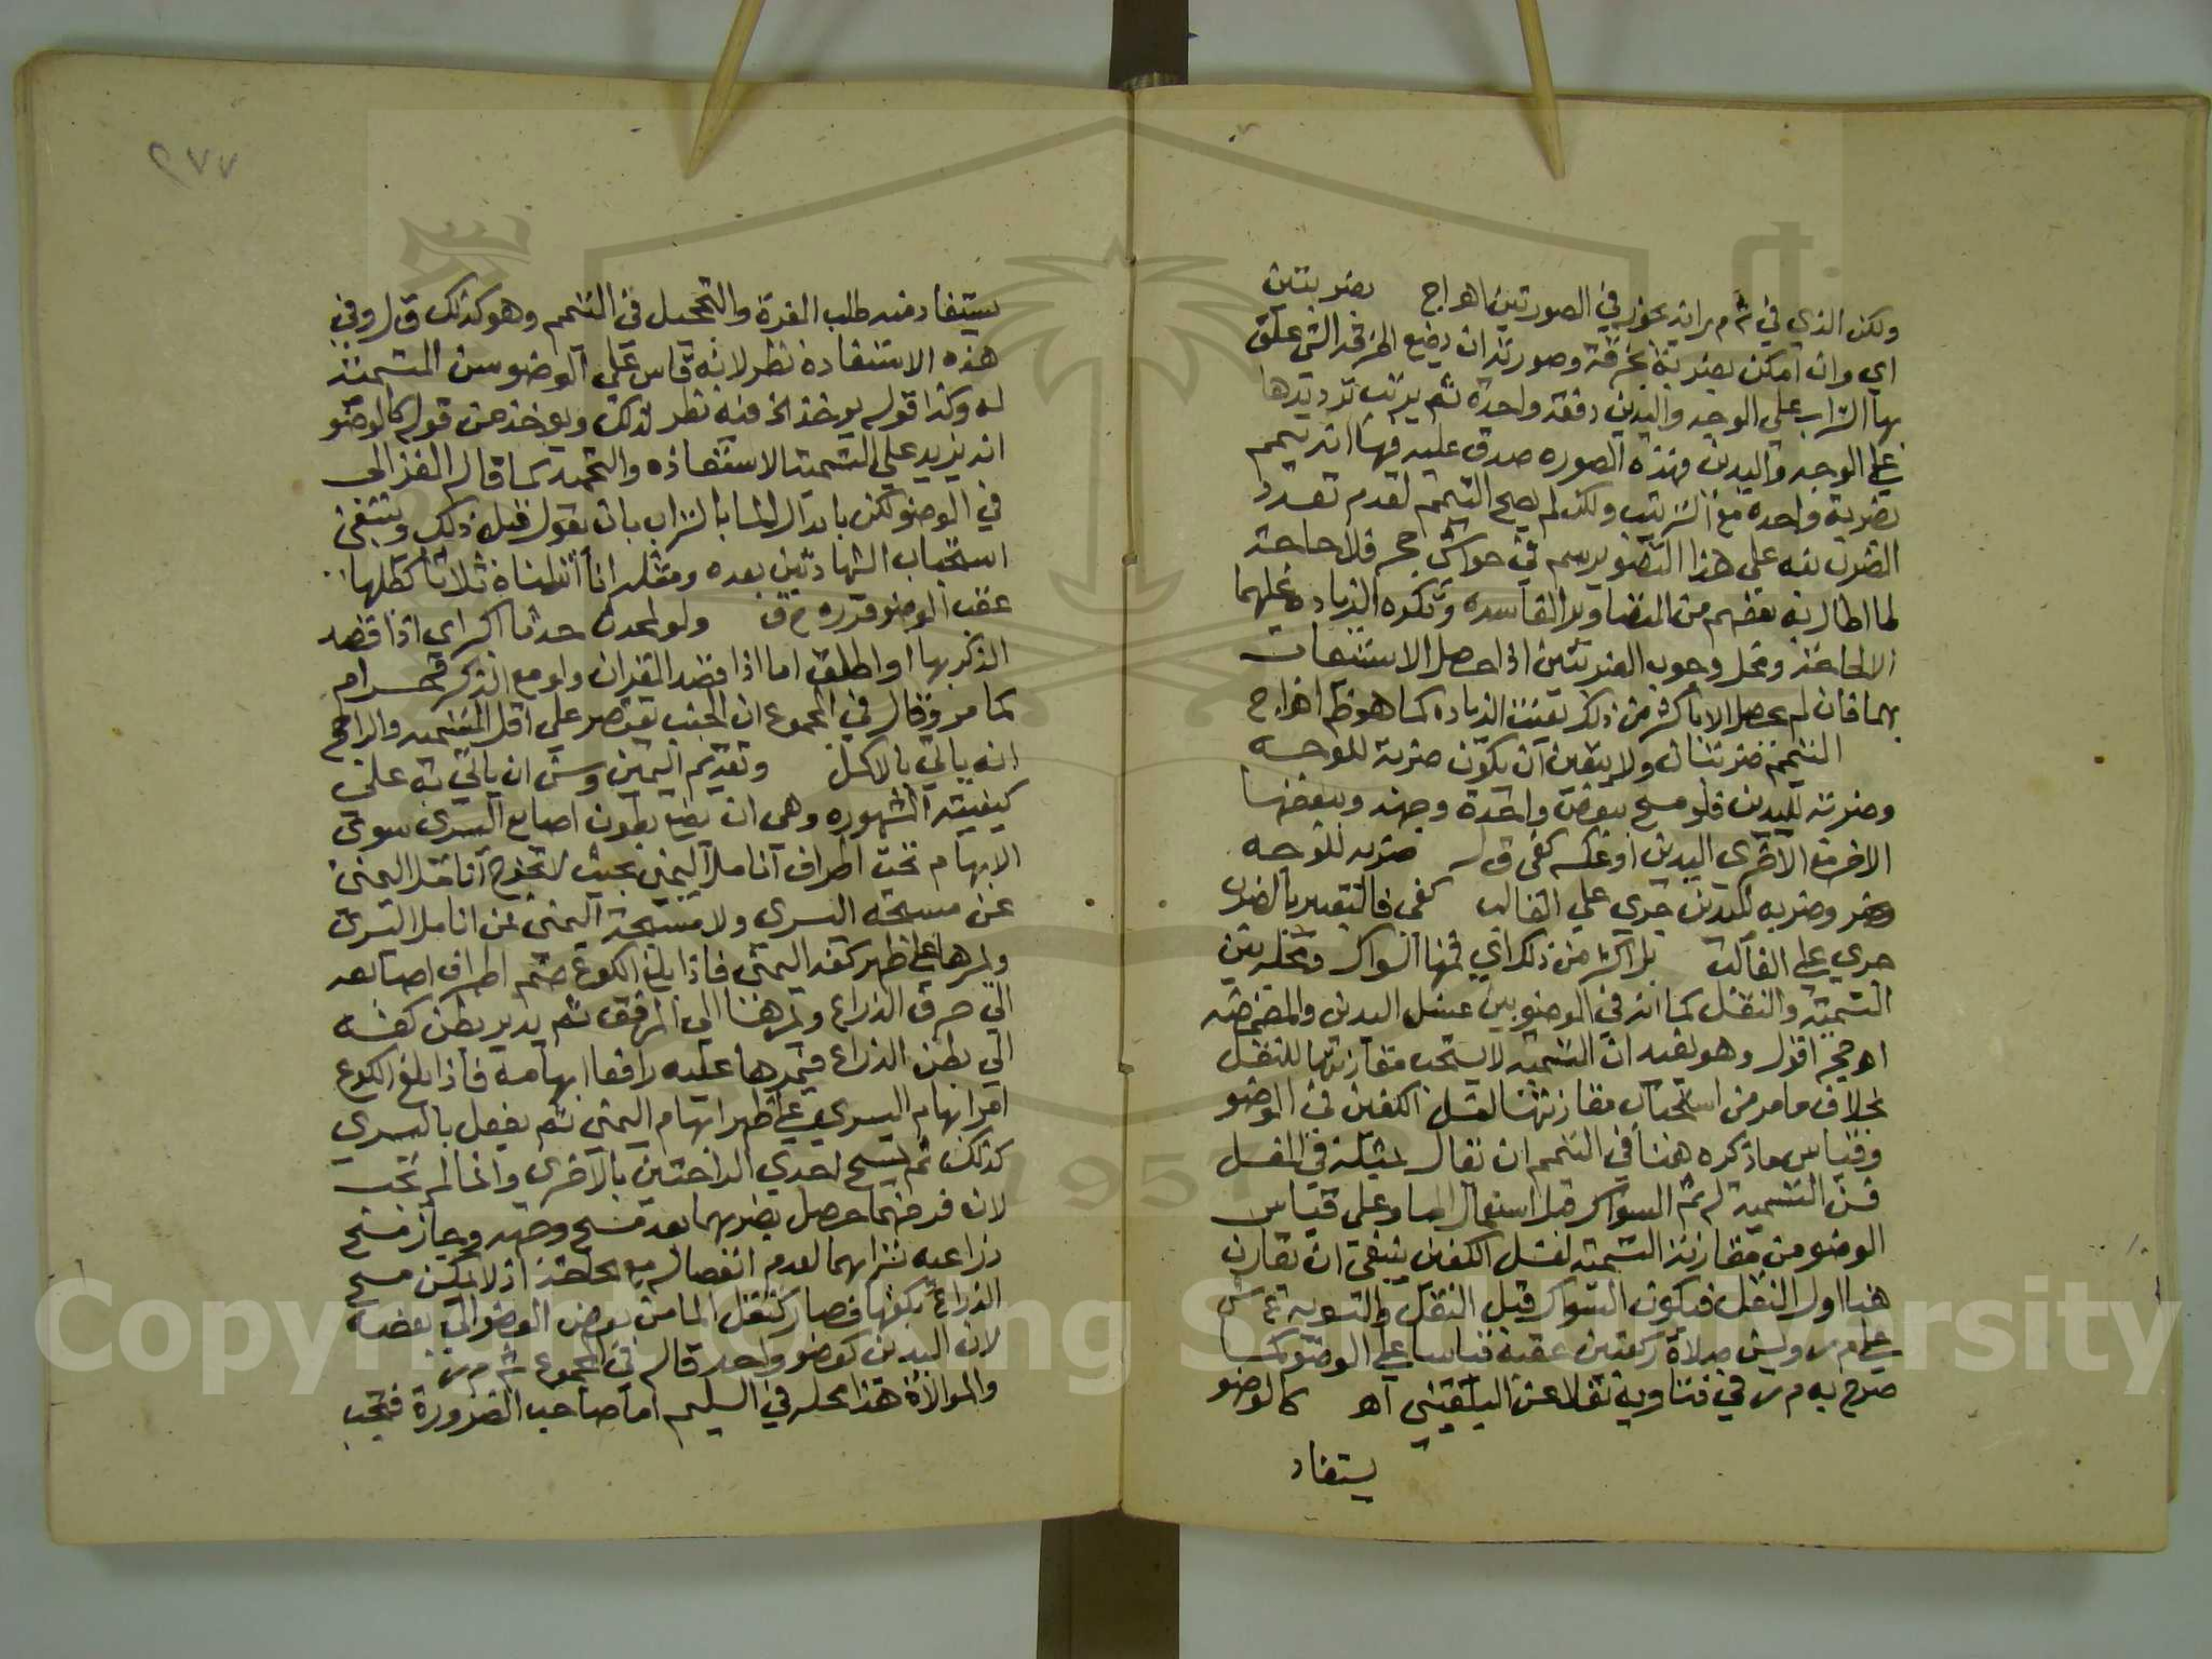 ولكن الذي في شم م ر انه يجوز في الصورتين اهـ اج بضربتين
اي وان امكن بضربة بخرقة وصورته ان يضع الخرقة التي علق
بها التراب على الوجه واليدين دفعة واحدة ثم يرتب ترديدها
على الوجه واليدين فهذه الصوره صدق عليه فيها انه تيمم
بضربة واحدة مع الترتيب ولكن لم يصح التيمم لعدم تعدد
الضرب نبه على هذا التصوير سم في حواشي حجر فلا حاجة
لما اطال به بعضهم من التصاوير الفاسدة وتكره الزيادة عليهما
الا لحاجة ومحل وجوب الضربتين اذا حصل الاستيعاب
بهما فان لم يحصل الا باكثر من ذلك تعينت الزيادة كما هو ظ اهـ اج
التيمم ضربتان ولا يتعين ان يكون ضربة للوجه
وضربة لليدين فلو مسح ببعض واحدة وجهه وببعضها
الاخر مع الاخرى اليدين او عكسه كفى ق ل ضربة للوجه
وضربه لليدين جري على الغالب كفى فالتعبير بالضرب
جري على الغالب بل اكثر من ذلك اي فمنها السواك ومحله بين
التسمية والنقل كما انه في الوضو بين غسل اليدين والمضمضه
اهـ حجر اقول وهو يفيد ان التسمية لا يستحب مقارنتها للنقل
بخلاف ما مر من استحباب مقارنتها لغسل الكفين في الوضو
وقياس ما ذكره هنا في التيمم ان يقال بمثله في الغسل
فسن التسمية له ثم السواك قبل استعمال الماء وعلى قياس
الوضو من مقارنة التسمية لغسل الكفين ينبغي ان تقارن
هنا اول النقل فيكون السواك قبل النقل والتسوية ع ش
على م ر وليس صلاة ركعتين عقبه قياسا على الوضو كما
صرح به م ر في فتاويه نقلا عن البلقيني اهـ كالوضو
يستفاد
٢٧٧
يستفاد منه طلب الغرة والتحجيل في التيمم وهو كذلك ق ل وفي
هذه الاستفادة نظر لانه قاس على الوضو سن التسمية
له وكذا قوله يوخذ الخ فيه نظر لذلك ويوخذ من قوله كالوضو
انه يزيد على التسمية الاستعاذه والتحميد كما قال الغزالي
في الوضو لكن بابدال الماء بالتراب بان يقول قبل ذلك وينبغي
استحباب الشهادتين بعده ومثله انا انزلناه ثلاثا كطلبها
عقب الوضو قرره ح ف ولو لمحدث حدثا اكبر اي اذا قصد
الذكر بها او اطلق اما اذا قصد القران ولو مع الذكر فحرام
كما مر وقال في المجموع ان الجنب يقتصر على اقل التسميه والراجح
انه ياتي بالاكمل وتقديم اليمين وسن ان ياتي به على
كيفيته المشهوره وهي ان يضع بطون اصابع اليسرى سوى
الابهام تحت اطراف انامل اليمنى بحيث لا تخرج انامل اليمنى
عن مسبحة اليسرى ولا مسبحة اليمنى عن انامل اليسرى
ويمرها على ظهر كفه اليمنى فاذا بلغ الكوع ضم اطراف اصابعه
الى حرف الذراع ويمرها الى المرفق ثم يدير بطن كفه
الى بطن الذراع فيمرها عليه رافعا ابهامه فاذا بلغ الكوع
امر ابهام اليسرى على ظهر ابهام اليمنى ثم يفعل باليسرى
كذلك ثم يمسح احدي الراحتين بالاخرى وانما لم تجب
لان فرضهما حصل بضربهما بعد مسح وجهه وجاز مسح
ذراعيه بترابهما لعدم انفصاله مع الحاجة اذ لا يمكن مسح
الذراع بكفها فصار كنقل الماء من بعض العضو الى بعضه
لان اليدين كعضو واحد قاله في المجموع شم م ر
والموالاة هذا محله في السليم اما صاحب الضرورة فتجب
Copyright © King Saud University
1957